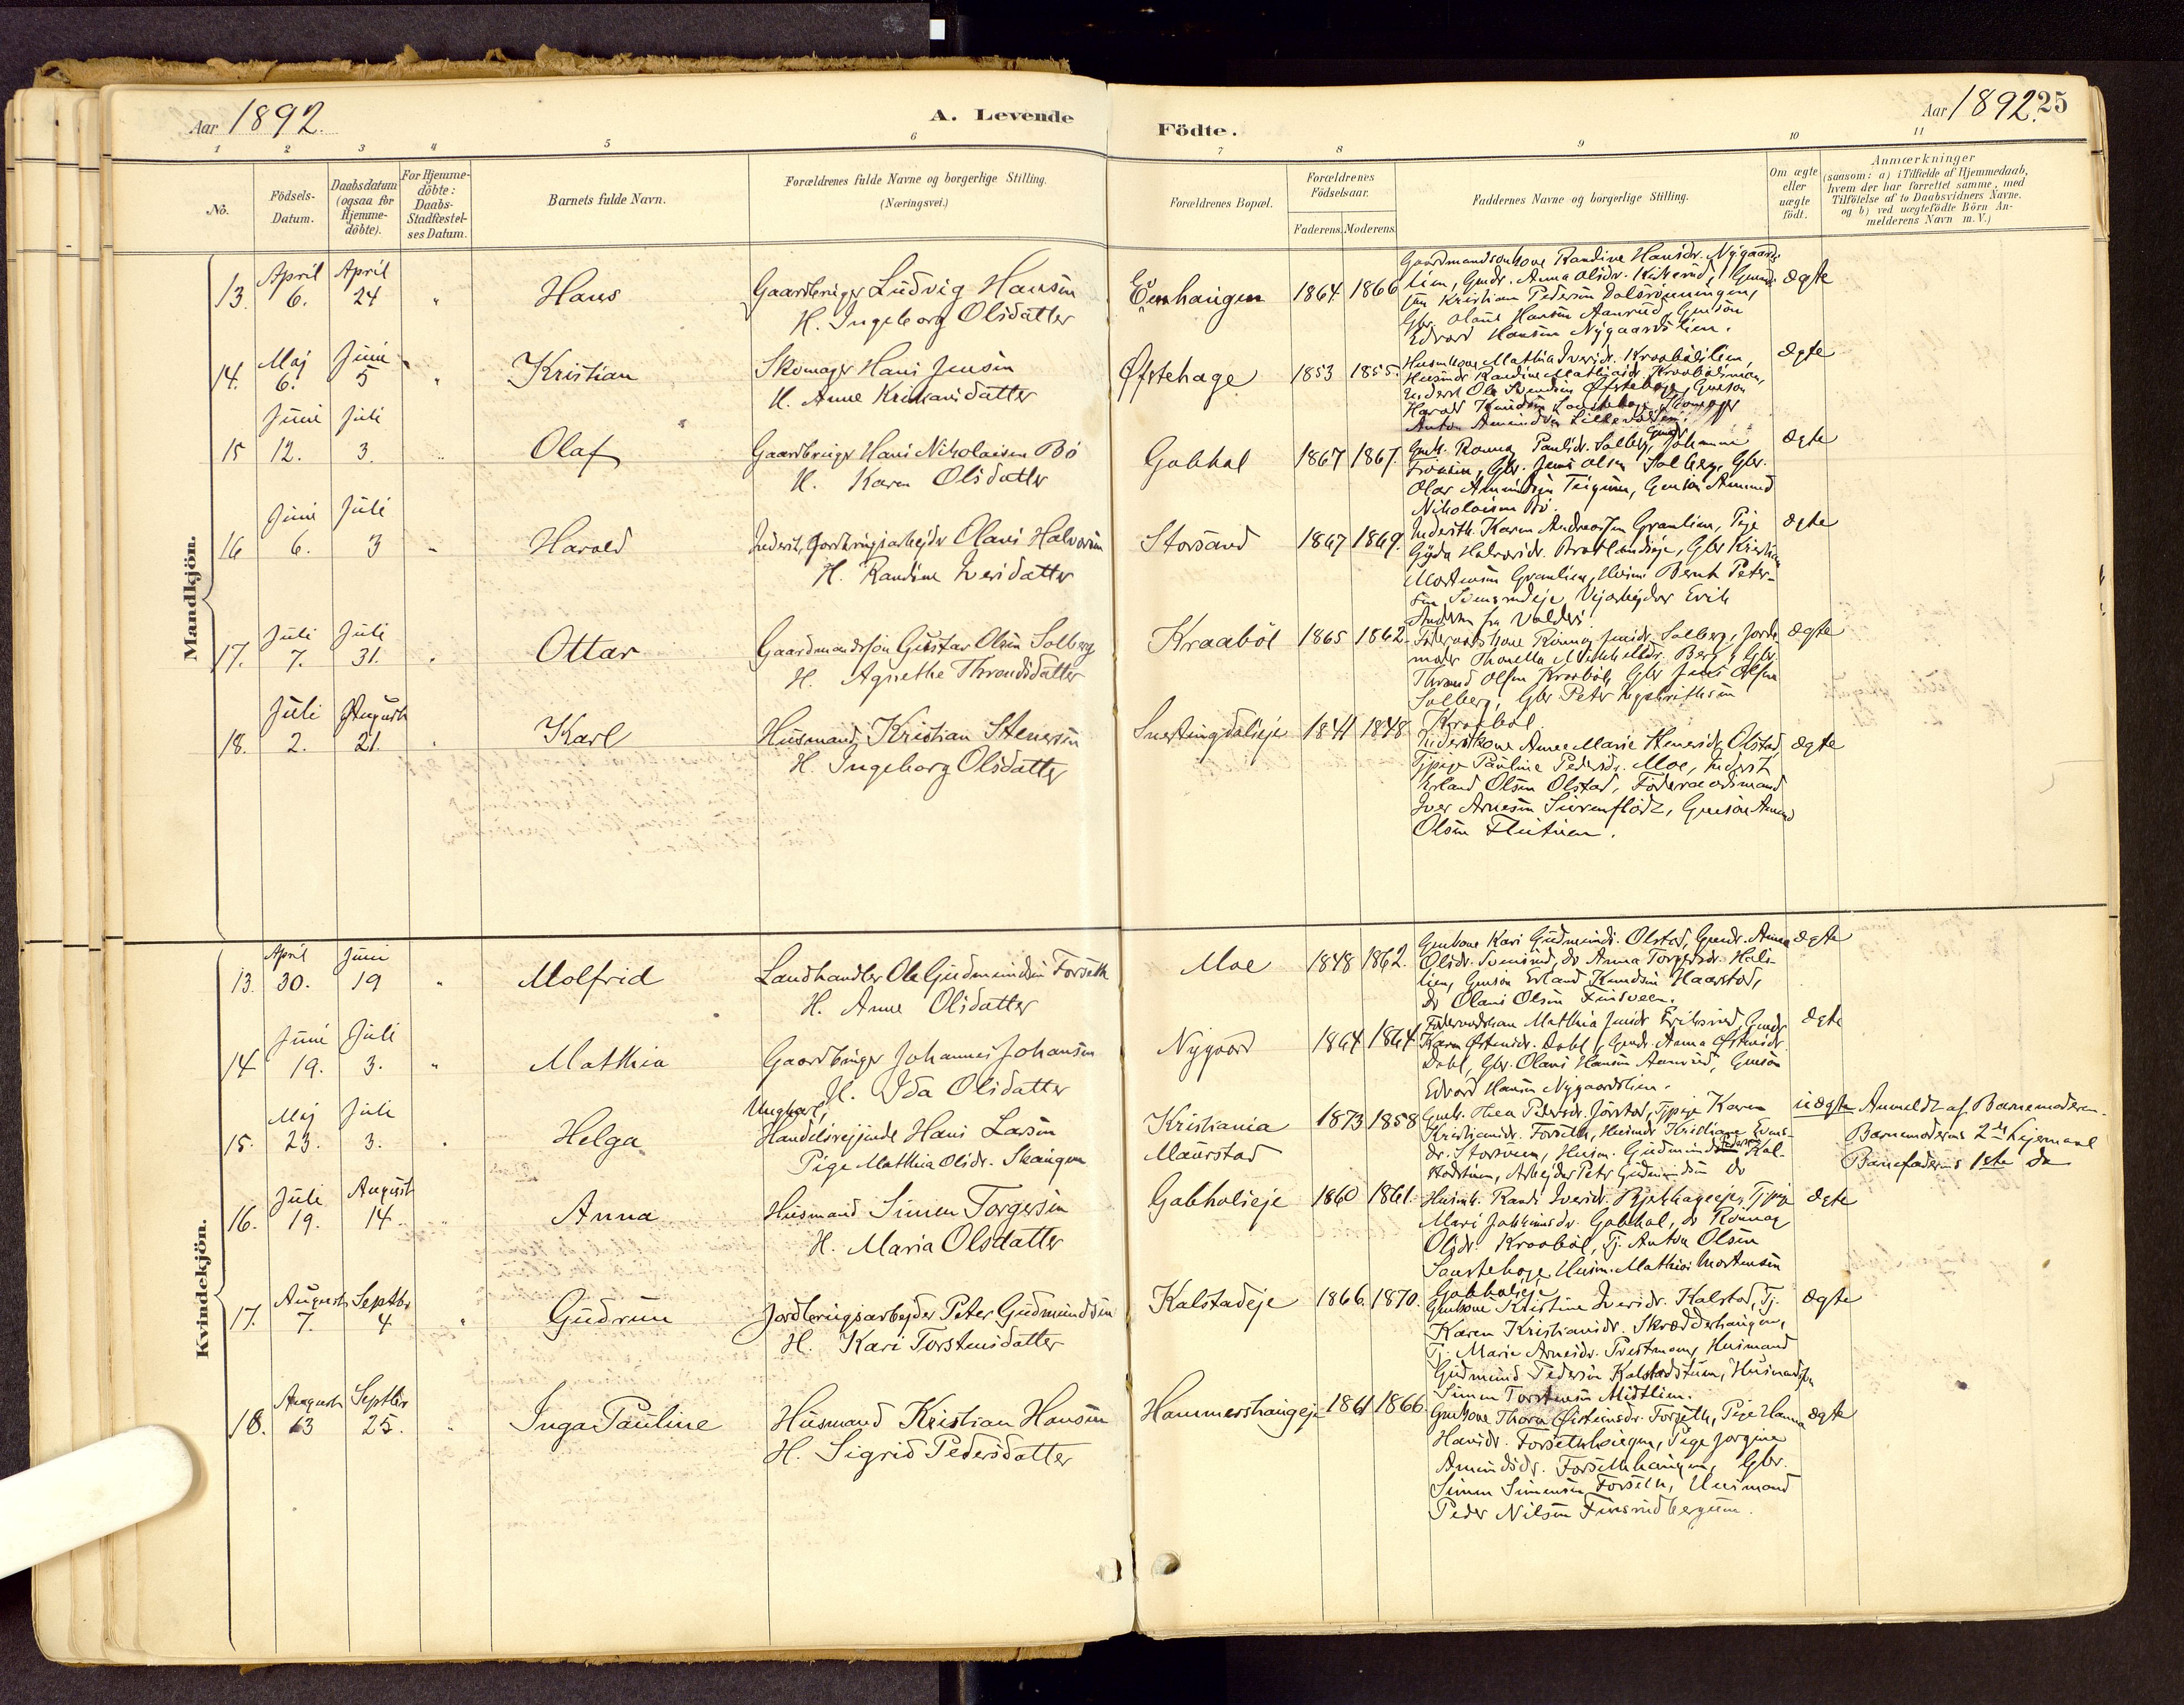 Aar 1892.
A. Levende Födte.
Aar 1892. 25
1 2 3 4 5 6 7 8 9 10 11
No.
Födsels-
Datum.
Daabsdatum
(ogsaa for
Hjemme-
döbte).
For Hjemme-
döbte:
Daabs-
Stadfæstel-
ses Datum.
Barnets fulde Navn.
Forældrenes fulde Navne og borgerlige Stilling.
(Næringsvei.)
Forældrenes Bopæl.
Forældrenes
Födselsaar.
Faderens. Moderens.
Faddernes Navne og borgerlige Stilling.
Om ægte
eller
uægte
födt.
Anmærkninger
(saasom: a) i Tilfælde af Hjemmedaab,
hvem der har forrettet samme, med
Tilföielse af to Daabsvidners Navne.
og b) ved uægtefödte Börn An-
melderens Navn m. V.)
Mandkjön.
13. April 6. April 24 " Hans
Gaardbruger Ludvig Hansen
H. Ingeborg Olsdatter
1864 1866
Gaardmandsenkone Randine Hansdr. Nygaards-
lien, Gmdr. Anna Olsdr.
Kristian Pedersen
Gbr. Olaus Hansen Aanrud, Gmsön
Edvard Hansen Nygaardslien.
ægte
14. Maj 6. Juni 5 " Kristian
Skomager Hans Jensen
H. Anne Kristiansdatter
Øfstehage 1853 1855.
Husmkone Mathia Iversdr. Kraabölslien,
Inderst Ole Svendsen Øfstehage, Gmsön
Harald Knudsen
Anton Amundsen
ægte
15 Juni 12. Juli 3. " Olaf
Gaardbruger Hans Nikolaisen Bö
H. Karen Olsdatter
Gabhal 1867 1867.
Gmk. Rönnog Paulsdr. Solberg, Gmdr Johanne
Gbr. Jens Olsen Solberg, Gbr.
Olar Amundsen Teigum, Gmsön Amund
Nikolaisen Bö.
ægte
16 Juni 6. Juli 3 " Harald
Inderst, Jordbrugsarbejder Olaus Halvorsen
H. Randine Iversdatter
Storsand 1867 1869.
Inderstk. Karen Andreasdtr Granlien, Pige
Gyda Halvorsdr. Gbr Kristian
Mortensen Granlien, Husm. Bernt Peter-
sen Svensrudeje, Vejarbejder Erik
Andersen fra Valders.
ægte
17. Juli 7. Juli 31. " Ottar
Gaardmandssön Gustav Olsen Solberg
H. Agnethe Throndsdatter
Kraaböl 1865 1862.
Föderaadskone Rönnog Jensdr. Solberg, Jorde-
moder Thonetta Mikkelsdr. Berg, Gbr.
Thrond Olsen Kraaböl, Gbr Jens Olsen
Solberg, Gbr Peter
Kraaböl.
ægte
18. Juli 2. August 21. " Karl
Husmand Kristian Stenersen
H. Ingeborg Olsdatter
Snertingdalseje 1841 1848
Inderstkone Anne Marie Stenersdr. Olstad,
Tjpige Pauline Pedersdr. Moe, Inderst
Erland Olsen Olstad, Föderaadsmand
Iver Arnesen Surenflödt, Gmsön Amund
Olsen Flutuen.
ægte
Kvindekjön.
13. April 30. Juni 19 " Molfrid
Landhandler Ole Gudmundsen Forseth
H. Anne Olsdatter
Moe 1848 1862.
Gmkone Kari Gudmunds. Olstad, Gmdr. Anna
Olsdr. Svensrud, do Anna Torgersdr.
lien, Gmsön Erland Knudsen Haarstad,
do Olaus Olsen Finsveen.
ægte
14 Juni 19. Juli 3. " Mathia
Gaardbruger Johannes Johansen
H. Ida Olsdatter
Nygaard 1864 1864.
Mathia Jensdr Eriksrud, Gmdr
Karen Østensdr. Dahl, Gmdr. Anna Østensdr
Dahl, Gbr. Olaus Hansen Aanrud, Gmsön
Edvard Hansen Nygaardslien.
ægte
15. Maj 23. Juli 3. " Helga
Ungkarl,
Handelsrejsende Hans Larsen
Pige Mathia Olsdr. Skaugen
Kristiania
Maurstad
1873 1858
Gmk. Thea Pedersdr. Jörstad, Tjpige Karen
Kristiansdr. Forseth, Husmdr Kristiane Evens-
dr. Storsveen, Husm. Gudmund Pedersen Kal-
stadstuen, Arbejder Peter Gudmundsen do
uægte
Anmeldt af Barnemoderen.
Barnemoderens 2det Lejermaal
Barnefaderens 1ste do
16. Juli 19. August 14. " Anna
Husmand Simen Torgersen
H. Maria Olsdatter
Gabholseje 1860 1861.
Husmk. Randi Iversdr. Bjerkhageeje, Tjpige
Mari Jokkimsdr. Gabhal, do Rönnog
Olsdr. Kraaböl, Tj. Anton Olsen
Husm. Mathias Mortensen
Gabholseje
ægte
17. August 7. Septbr 4 " Gudrun
Jordbrugsarbejder Peter Gudmundsen
H. Kari Torstensdatter
Kalstadeje 1866. 1870.
Gmkone Kristine Iversdr. Kalstad, Tj.
Karen Kristiansdr. Skrædderhaugen,
Tj. Marie Arnesdr. Prestmoen, Husmand
Gudmund Pedersen Kalstadstuen, Husmandssön
Simen Torstensen Midtlien.
ægte
18. August 13 Septbr 25. " Inga Pauline
Husmand Kristian Hansen
H. Sigrid Pedersdatter
Hammershaugeje 1861 1866
Gmkone Thora Øisteinsdr. Forseth, Pige Hanna
Hansdr. Forsethhaugen, Pige Jorgine
Amundsdr. Forsethhaugen, Gbr.
Simen Simensen Forseth, Husmand
Peder Nilsen Finsrudbergum.
ægte